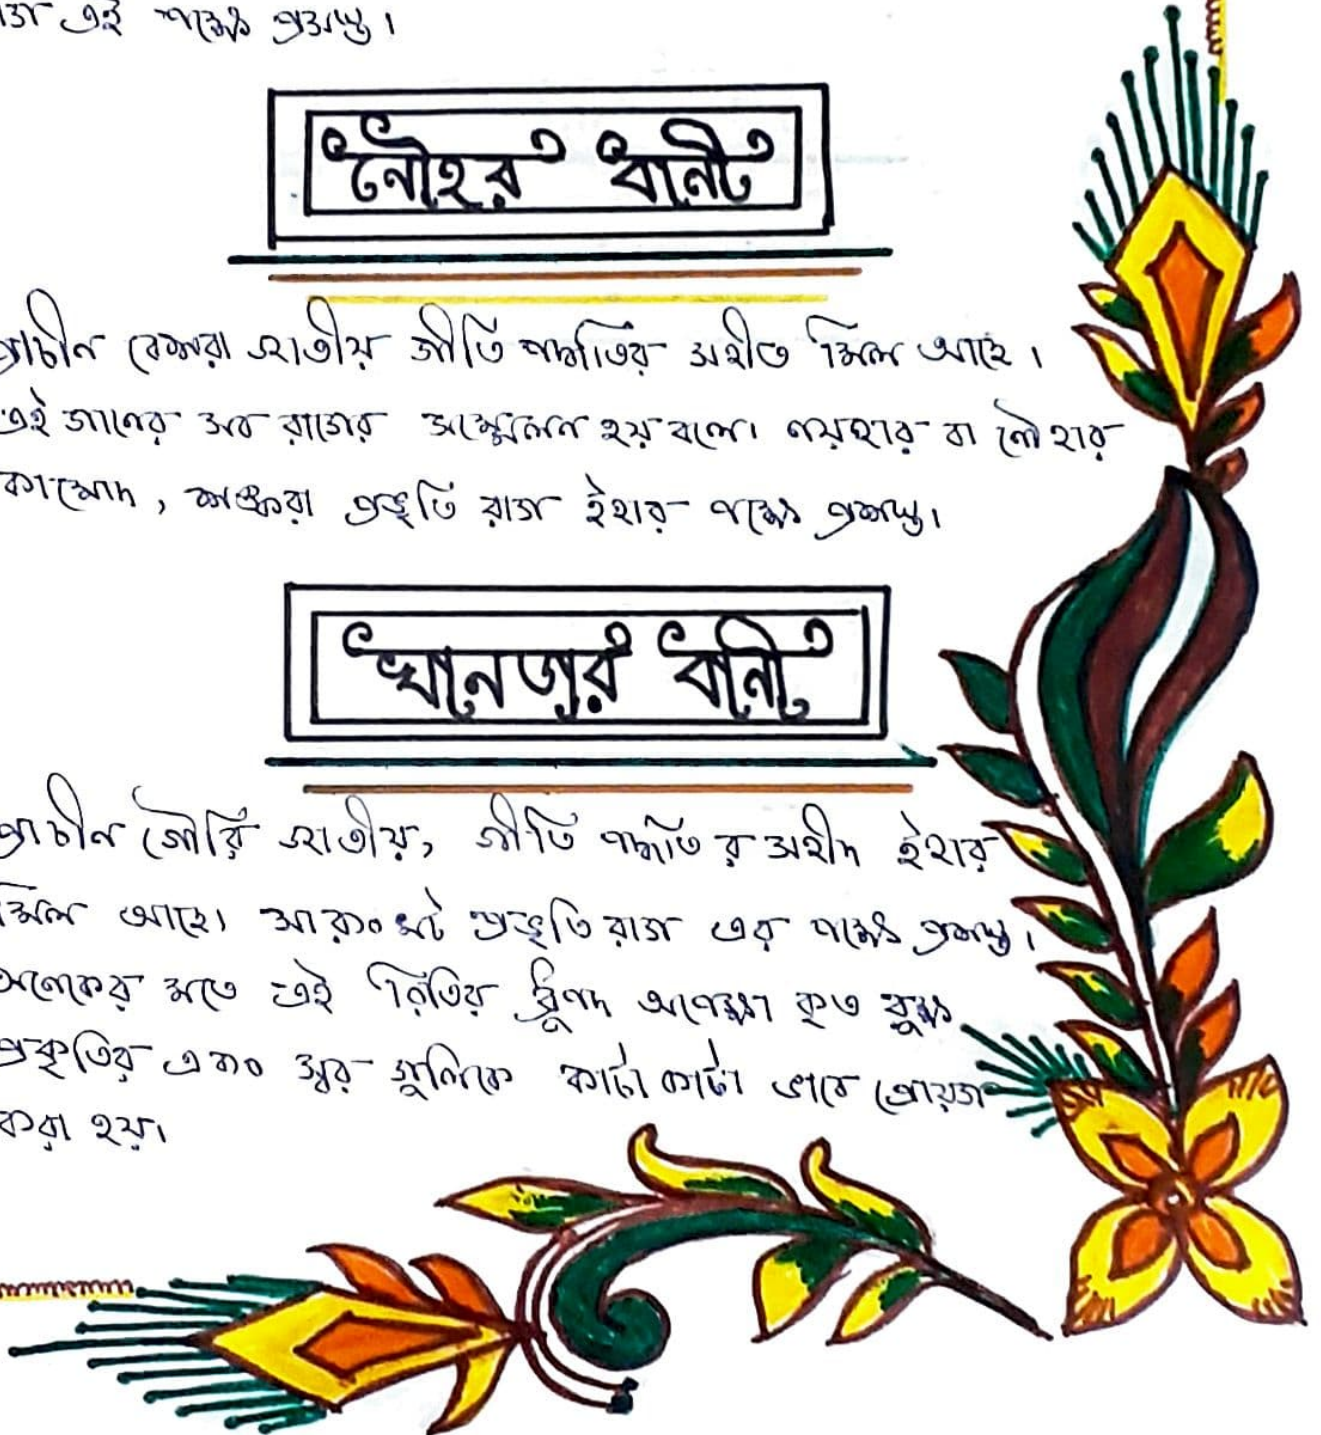 এই পক্ষে প্রশস্ত।
নৌহর বানী
প্রাচীন বেসরা জাতীয় গীতি পদ্ধতির সহীত মিল আছে।
এই গানের সব রাগের সম্মেলন হয় বলে। নয়হার বা নৌহার
কামোদ, শঙ্করা প্রভৃতি রাগ ইহার পক্ষে প্রশস্ত।
খানডার বানী
প্রাচীন গৌরি জাতীয়, গীতি পদ্ধতি র সহীদ ইহার
মিল আছে। প্রভৃতি রাগ এর পক্ষে প্রশস্ত।
অনেকের মতে এই রিতির ধ্রুপদ অপেক্ষা কৃত রুক্ষ
প্রকৃতির এবং স্বর গুলিকে কাটা কাটা ভাবে প্রোয়গ
করা হয়।